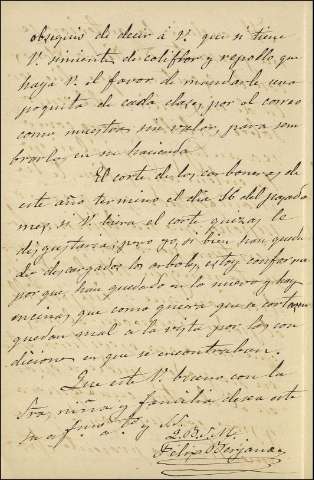 obsequio de decir á V. que si tiene
V. simiente de coliflor y repollo que
haga V. el favor de mandarle una
poquita de cada clase, por el correo
como muestras sin valor, para sem
brarlas en su hacienda.
El corte de los carboneros de
este año termino el dia 16 del pasado
mes, si V. biera el corte quizas le
disgustara, pero yo, si bien han queda
do descargados los arboles, estoy conforme
por que, han quedado en lo nuevo y hay
encinas que como quiera que se cortasen
quedan mal á la vista por las con
diciones en que se encontraban.
Que esté V. bueno con la
Sra, niña y familia desea este
su af
y
Q. B. S. M.
Felix Berjano